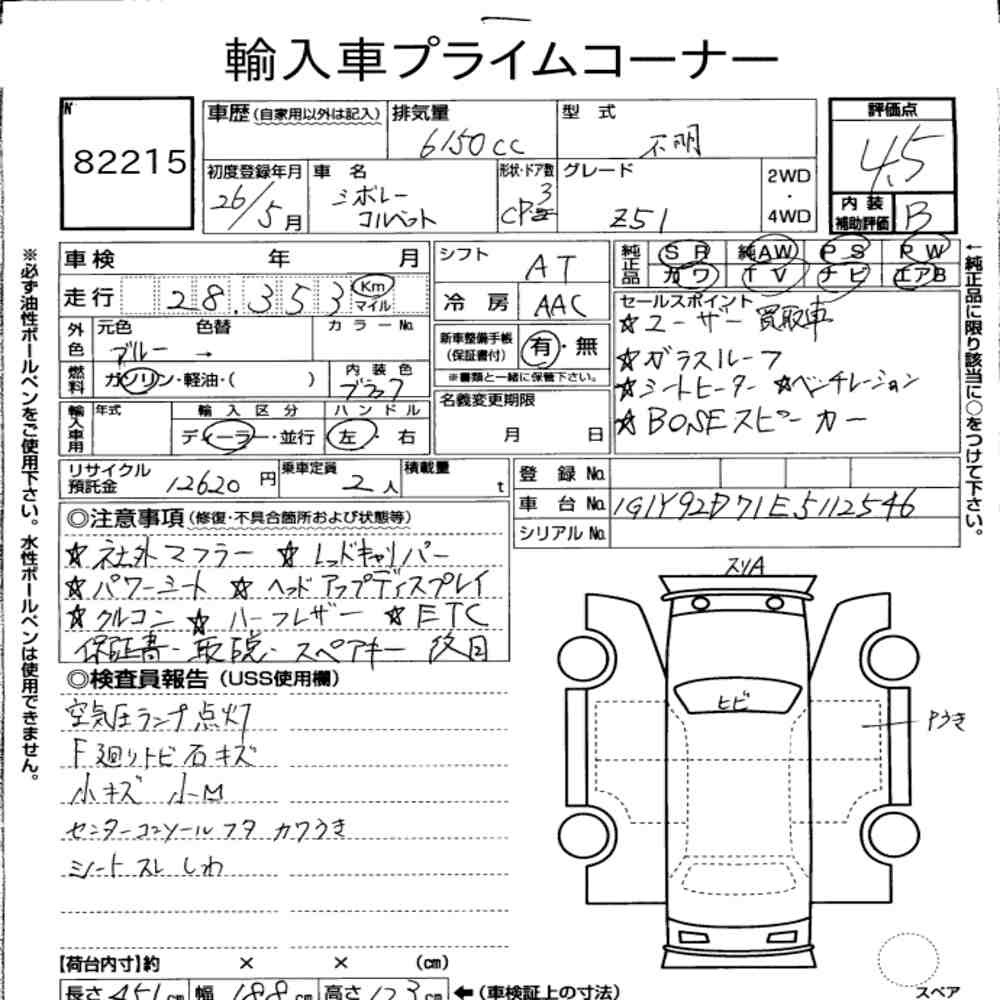 輸入車プライムコーナー
No.
82215
車歴(自家用以外は記入)
排気量
6150cc
型 式
不明
評価点
4.5
初度登録年月
26/5月
車 名
シボレー
コルベット
形状・ドア数
3
CP
グレード
Z51
2WD
・
4WD
内 装
補助評価
B
※必ず油性ボールペンをご使用下さい。水性ボールペンは使用できません。
車検 年 月
走行 28.353 Km
マイル
外色
元色 色替 カラーNo.
ブルー →
燃料
ガソリン・軽油・( )
内 装 色
ブラック
輸入車用
年式
輸 入 区 分
ディーラー・並行
ハ ン ド ル
左・右
シフト
AT
冷 房
AAC
新車整備手帳
(保証書付)
有・無
※書類と一緒に保管下さい。
名義変更期限
月 日
純正品
SR 純AW PS PW
カワ TV ナビ エアB
セールスポイント
☆ユーザー買取車
☆ガラスルーフ
☆シートヒーター ☆ベンチレーション
☆BOSEスピーカー
←純正品に限り該当に○をつけて下さい。
リサイクル
預託金
12620円
乗車定員
2人
積載量
t
登 録 No.
車 台 No.
1G1Y92D71E5112546
シリアル No.
◎注意事項(修復・不具合箇所および状態等)
☆社外マフラー ☆レッドキャリパー
☆パワーシート ☆ヘッドアップディスプレイ
☆クルコン ☆ハーフレザー ☆ETC
保証書・取説・スペアキー 後日
◎検査員報告(USS使用欄)
空気圧ランプ点灯
F廻りトビ石キズ
小キズ 小凹
センターコンソールフタ カワうき
シートスレ しわ
スリA
ヒビ
Pうき
【荷台内寸】約 × × (cm)
長さ 451cm 幅 188cm 高さ 123cm ←(車検証上の寸法)
スペア